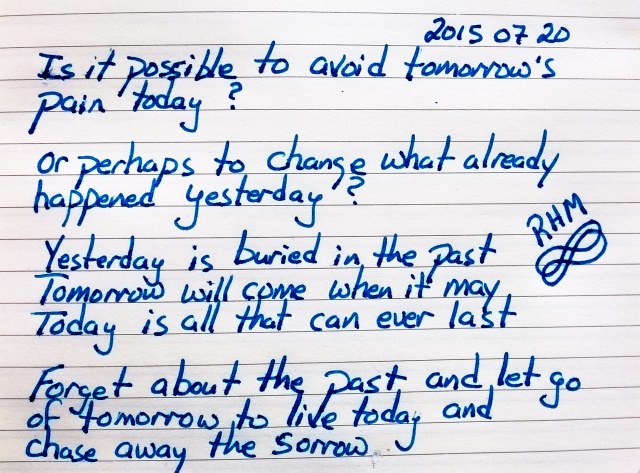 2015 07 20
Is it possible to avoid tomorrow's
pain today?
Or perhaps to change what already
happened yesterday?
RHM
Yesterday is buried in the past
Tomorrow will come when it may
Today is all that can ever last
Forget about the past and let go
of tomorrow, to live today and
chase away the sorrow.